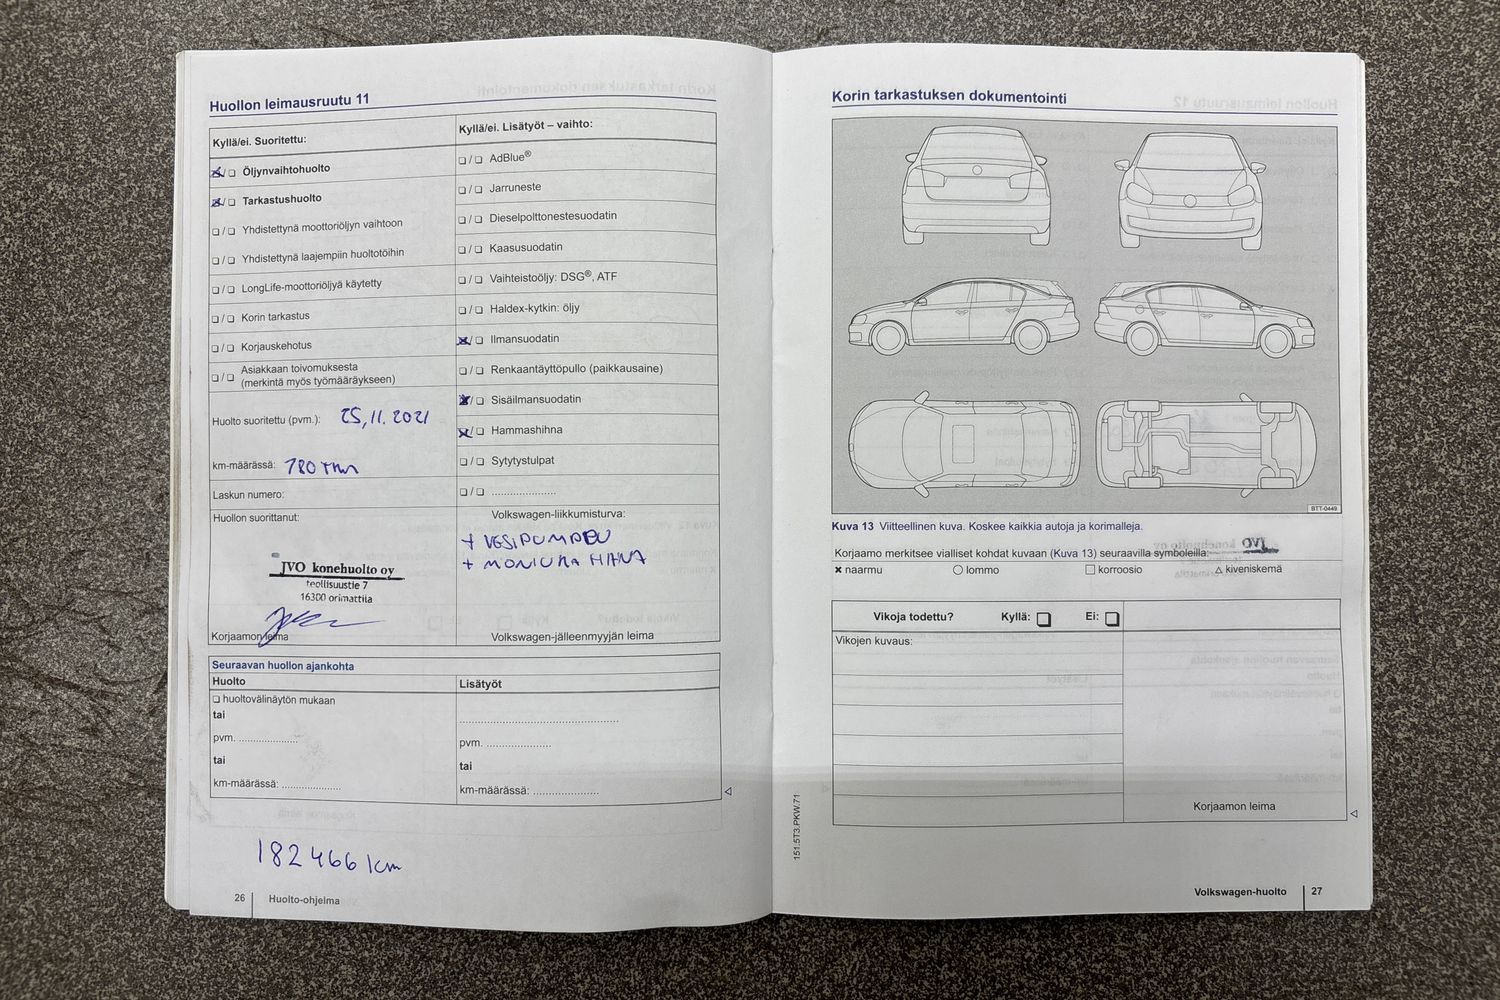 Huollon leimausruutu 11
Kyllä/ei. Suoritettu:
☒/❏ Öljynvaihtohuolto
☒/❏ Tarkastushuolto
❏/❏ Yhdistettynä moottoriöljyn vaihtoon
❏/❏ Yhdistettynä laajempiin huoltotöihin
❏/❏ LongLife-moottoriöljyä käytetty
❏/❏ Korin tarkastus
❏/❏ Korjauskehotus
❏/❏ Asiakkaan toivomuksesta
(merkintä myös työmääräykseen)
Huolto suoritettu (pvm.): 25,11.2021
km-määrässä: 180 tkm
Laskun numero:
Huollon suorittanut:
JVO konehuolto oy
teollisuustie 7
16300 orimattila
Korjaamon leima
Kyllä/ei. Lisätyöt – vaihto:
❏/❏ AdBlue®
❏/❏ Jarruneste
❏/❏ Dieselpolttonestesuodatin
❏/❏ Kaasusuodatin
❏/❏ Vaihteistoöljy: DSG®, ATF
❏/❏ Haldex-kytkin: öljy
☒/❏ Ilmansuodatin
❏/❏ Renkaantäyttöpullo (paikkausaine)
☒/❏ Sisäilmansuodatin
☒/❏ Hammashihna
❏/❏ Sytytystulpat
❏/❏ .....................
Volkswagen-liikkumisturva:
+ VESIPUMPPU
+ MONIURA HIHNA
Volkswagen-jälleenmyyjän leima
Seuraavan huollon ajankohta
Huolto
❏ huoltovälinäytön mukaan
tai
pvm. ....................
tai
km-määrässä: ....................
Lisätyöt
.....................................................
pvm. ......................
tai
km-määrässä: ......................
182466 km
26 Huolto-ohjelma
Korin tarkastuksen dokumentointi
BTT-0449
Kuva 13 Viitteellinen kuva. Koskee kaikkia autoja ja korimalleja.
Korjaamo merkitsee vialliset kohdat kuvaan (Kuva 13) seuraavilla symboleilla:
✖ naarmu ○ lommo □ korroosio △ kiveniskemä
Vikoja todettu? Kyllä: ❏ Ei: ❏
Vikojen kuvaus:
Korjaamon leima
151.5T3.PKW.71
Volkswagen-huolto 27